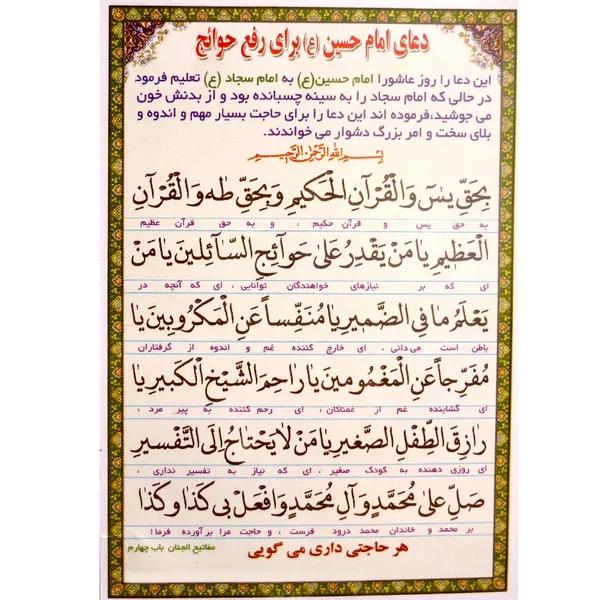 دعای امام حسین (ع) برای رفع حوائج
این دعا را روز عاشورا امام حسین(ع) به امام سجاد (ع) تعلیم فرمود
در حالی که امام سجاد را به سینه چسبانده بود و از بدنش خون
می جوشید،فرموده اند این دعا را برای حاجت بسیار مهم و اندوه و
بلای سخت و امر بزرگ دشوار می خواندند.
بِسْمِ اللهِ الرَّحْمٰنِ الرَّحِیمِ
بِحَقِّ یٰسۤ وَالْقُرْآنِ الْحَکیمِ وَ بِحَقِّ طٰه وَالْقُرْآنِ
به حق یس و قرآن حکیم ، و به حق قرآن عظیم
الْعَظیمِ یا مَنْ یَقْدِرُ عَلیٰ حَوآئِجِ السّآئِلینَ یا مَنْ
ای که بر نیازهای خواهندگان توانایی ، ای که آنچه در
یَعْلَمُ ما فِی الضَّمیرِ یا مُنَفِّساً عَنِ الْمَکْرُوبینَ یا
باطن است می دانی ، ای خارج کننده غم و اندوه از گرفتاران
مُفَرِّجاً عَنِ الْمَغْمُومینَ یا راحِمَ الشَّیْخِ الْکَبیرِ یا
ای گشاینده غم از غمناکان ، ای رحم کننده به پیر مرد ،
رازِقَ الطِّفْلِ الصَّغیرِ یا مَنْ لا یَحْتاجُ اِلَی التَّفْسیرِ
ای روزی دهنده به کودک صغیر ، ای که نیاز به تفسیر نداری ،
صَلِّ عَلیٰ مُحَمَّدٍ وَ آلِ مُحَمَّدٍ وَ افْعَلْ بی کَذا وَ کَذا
بر محمد و خاندان محمد درود فرست ، و حاجت مرا برآورده فرما!
هر حاجتی داری می گویی
مفاتیح الجنان باب چهارم